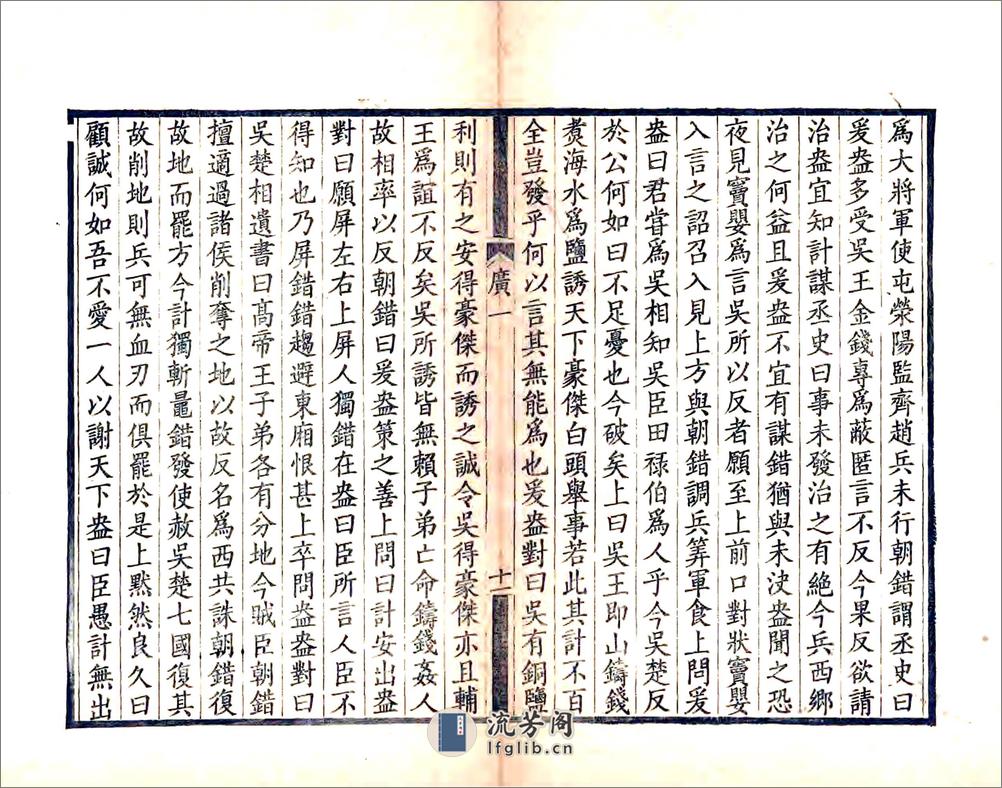 爲大將軍使屯滎陽監齊趙兵未行朝錯謂丞史曰
爰盎多受吳王金錢專爲蔽匿言不反今果反欲請
治盎宜知計謀丞史曰事未發治之有絕今兵西鄉
治之何益且爰盎不宜有謀錯猶與未決盎聞之恐
夜見竇嬰爲言吳所以反者願至上前口對狀竇嬰
入言之詔召入見上方與朝錯調兵筭軍食上問爰
盎曰君嘗爲吳相知吳臣田祿伯爲人乎今吳楚反
於公何如曰不足憂也今破矣上曰吳王即山鑄錢
煑海水爲鹽誘天下豪傑白頭舉事若此其計不百
全豈發乎何以言其無能爲也爰盎對曰吳有銅鹽
廣一
十一
利則有之安得豪傑而誘之誠令吳得豪傑亦且輔
王爲誼不反矣吳所誘皆無賴子弟亡命鑄錢姦人
故相率以反朝錯曰爰盎策之善上問曰計安出盎
對曰願屏左右上屏人獨錯在盎曰臣所言人臣不
得知也乃屏錯錯趨避東廂恨甚上卒問盎盎對曰
吳楚相遺書曰髙帝王子弟各有分地今賊臣朝錯
擅適過諸侯削奪之地以故反名爲西共誅朝錯復
故地而罷方今計獨斬鼂錯發使赦吳楚七國復其
故削地則兵可無血刃而俱罷於是上黙然良久曰
顧誠何如吾不愛一人以謝天下盎曰臣愚計無出
流芳阁
lfglib.cn